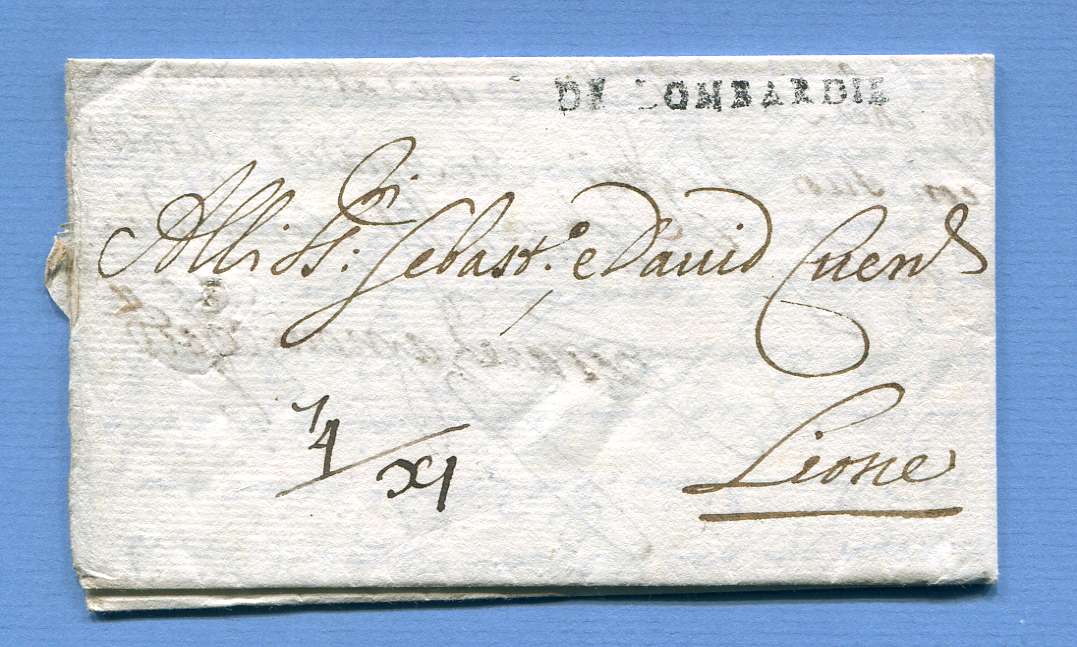 DE LOMBARDIE
Alli SS:ri Sebast.o e David Cuend
Lione